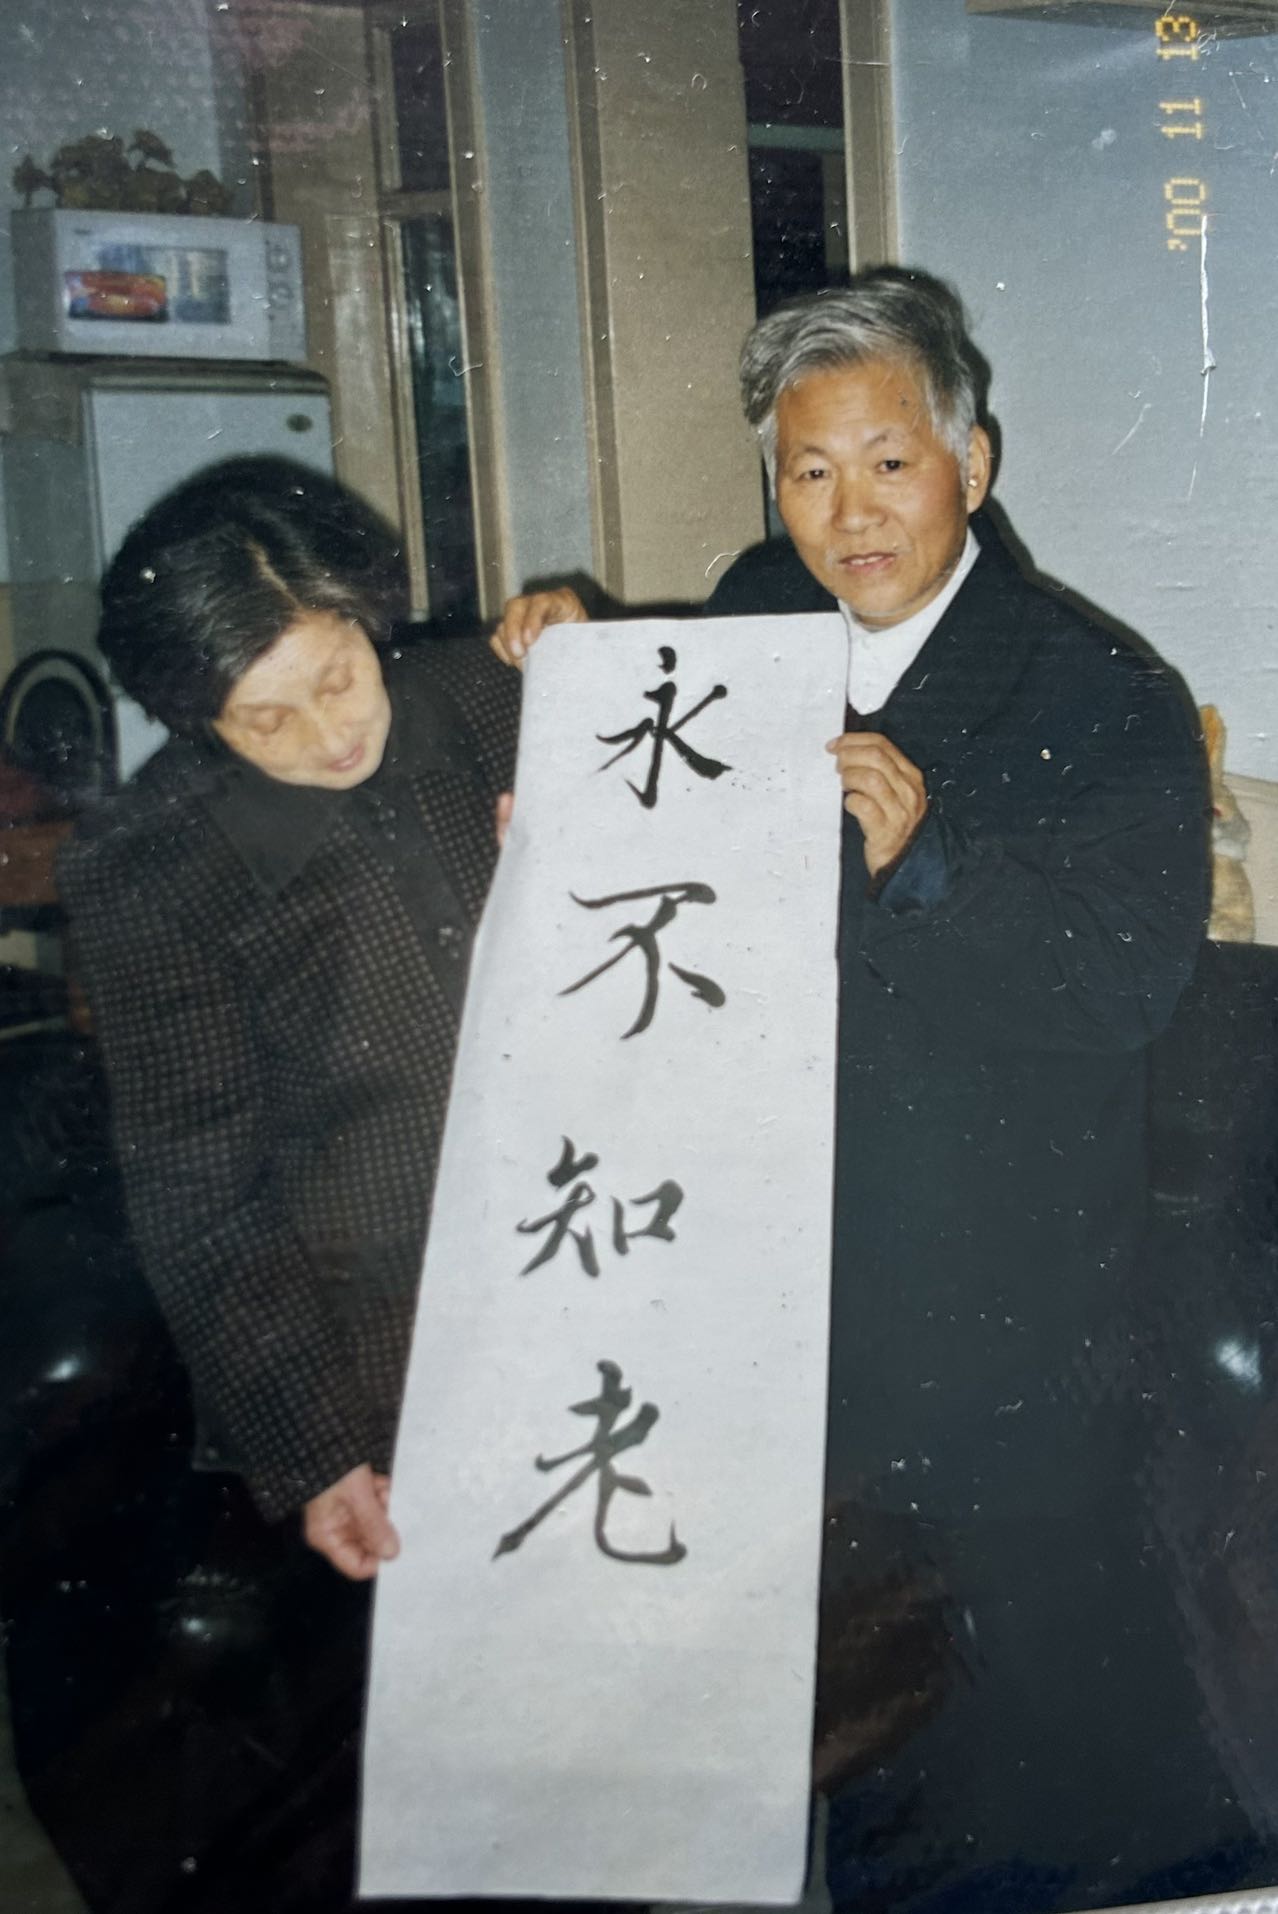 永不知老
'00 11 13